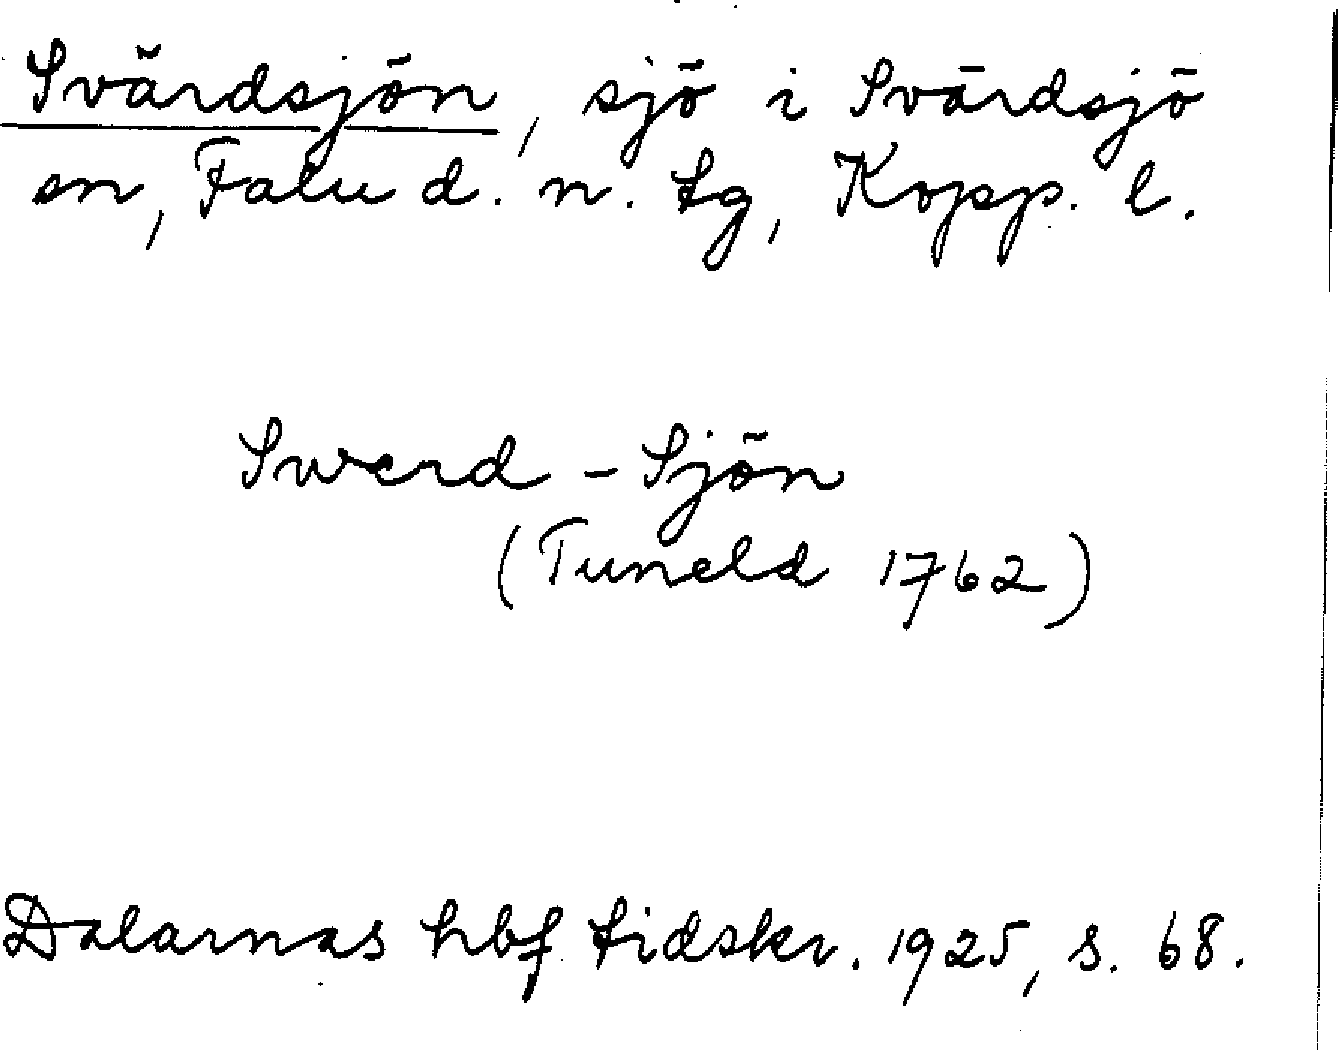 Svärdsjön, sjö i Svärdsjö
sn, Falu d. n. tg, Kopp. l.
Swerd-Sjön
(Tuneld 1762)
Dalarnas hbf tidskr. 1925, s. 68.